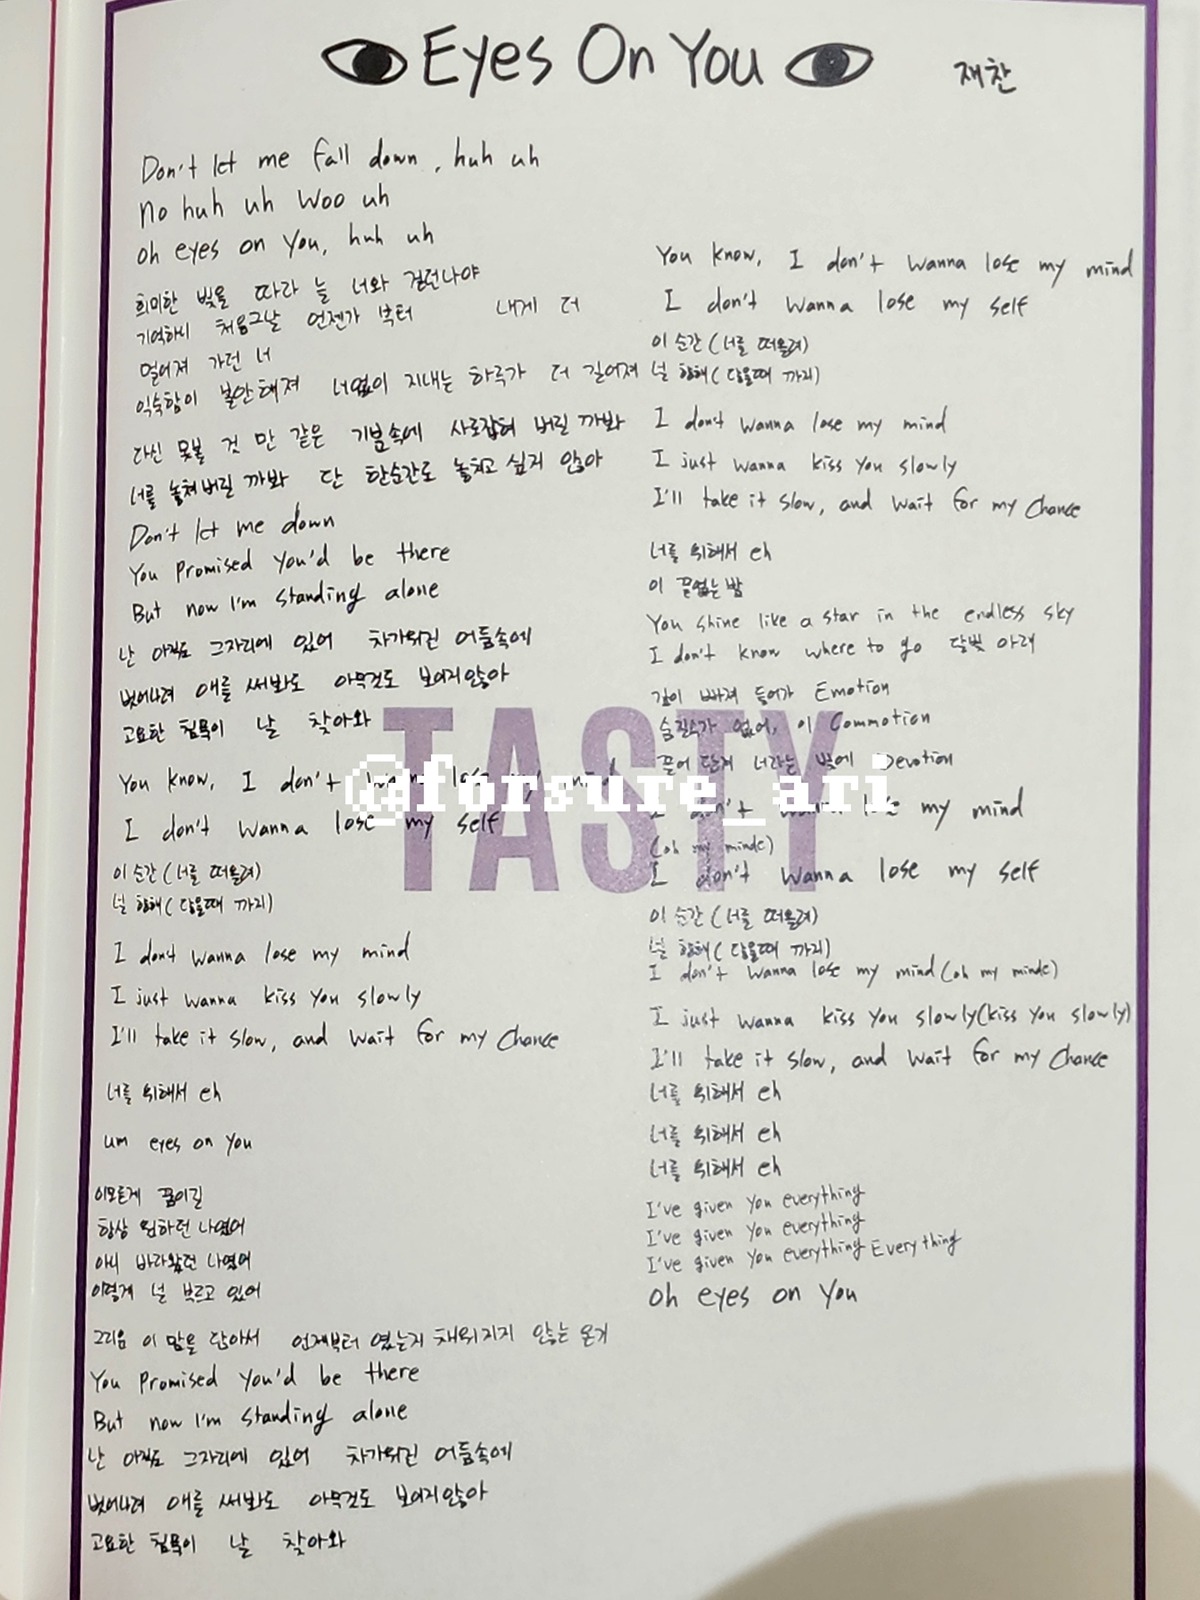 Eyes On You
재찬
Don't let me fall down, huh uh
No huh uh Woo uh
Oh eyes on You, huh uh
희미한 빛을 따라 늘 너와 걷던나야
기억하니 처음그날 언젠가 부터 내게 더
멀어져 가던 너
익숙함이 불안해져 너없이 지내는 하루가 더 길어져
다신 못볼 것 만 같은 기분속에 사로잡혀 버릴 까봐
너를 놓쳐버릴 까봐 단 한순간도 놓치고 싶지 않아
Don't let me down
You Promised You'd be there
But now I'm standing alone
난 아직도 그자리에 있어 차가워진 어둠속에
벗어나려 애를 써봐도 아무것도 보이지않아
고요한 침묵이 날 찾아와
You know, I don't wanna lose my mind
I don't wanna lose my self
이 순간 (너를 떠올려)
널 향해 (닿을때 까지)
I don't wanna lose my mind
I just wanna kiss You slowly
I'll take it slow, and wait for my Chance
너를 위해서 eh
um eyes on You
이모든게 꿈이길
항상 원하던 나였어
아니 바라왔던 나였어
이렇게 널 부르고 있어
그리움 이 맘을 담아서 언제부터 였는지 채워지지 않는 온기
You Promised You'd be there
But now I'm standing alone
난 아직도 그자리에 있어 차가워진 어둠속에
벗어나려 애를 써봐도 아무것도 보이지않아
고요한 침묵이 날 찾아와
You know, I don't wanna lose my mind
I don't wanna lose my self
이 순간 (너를 떠올려)
널 향해 (닿을때 까지)
I don't wanna lose my mind
I just wanna kiss You slowly
I'll take it slow, and wait for my Chance
너를 위해서 eh
이 끝없는 밤
You shine like a star in the endless sky
I don't know where to go 달빛 아래
깊이 빠져 들어가 Emotion
숨 없어, 이 Commotion
너라는 빛에 Devotion
I don't wanna lose my mind
(oh my minde)
I don't wanna lose my self
이 순간 (너를 떠올려)
널 향해 (닿을때 까지)
I don't wanna lose my mind (oh my minde)
I just wanna kiss You slowly (kiss You slowly)
I'll take it slow, and wait for my Chance
너를 위해서 eh
너를 위해서 eh
너를 위해서 eh
I've given You everything
I've given You everything
I've given You everything Everything
Oh eyes on You
TASTY
@forsure_ari